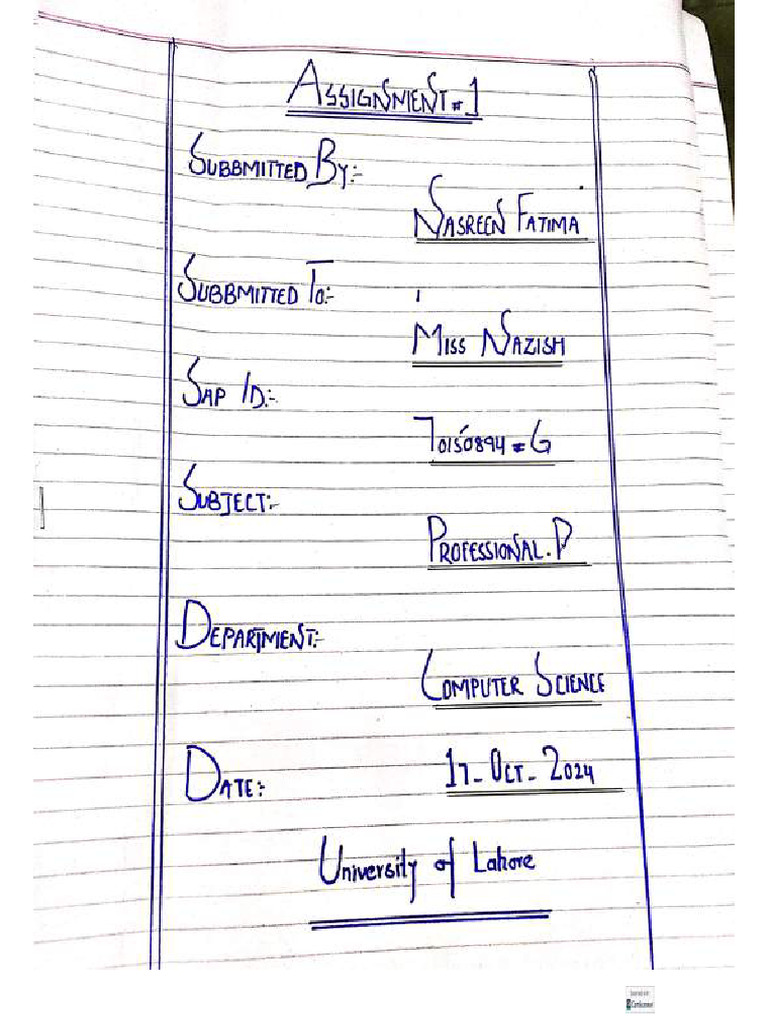 ASSIGNMENT # 1
SUBBMITTED BY:-
NASREEN FATIMA
SUBBMITTED TO:-
MISS NAZISH
SAP ID:-
70150894 = G
SUBJECT:-
PROFESSIONAL. P
DEPARTMENT:-
COMPUTER SCIENCE
DATE:-
17- OCT- 2024
University of Lahore
CamScanner